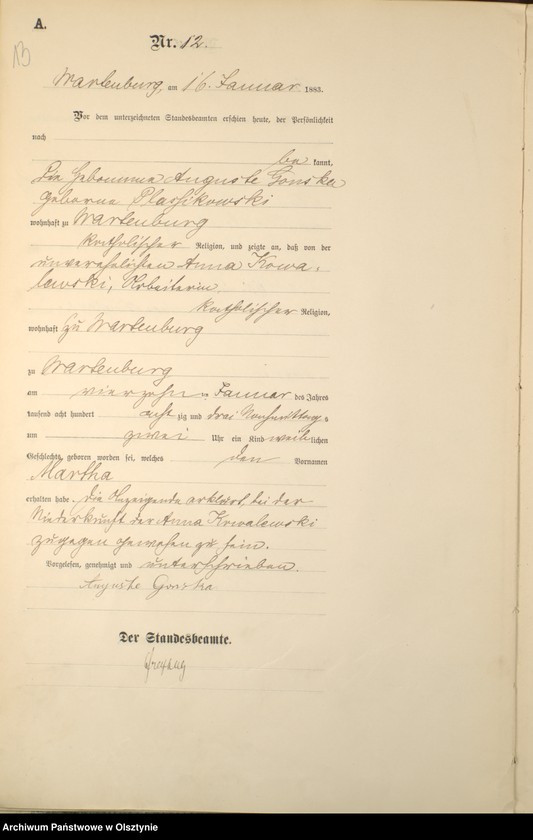 A.
Nr. 12.
13
Wartenburg, am 16. Januar 1883.
Vor dem unterzeichneten Standesbeamten erschien heute, der Persönlichkeit
nach
be kannt,
Die Hebamme Auguste Gonska
geborne Plaschikowski
wohnhaft zu Wartenburg
katholischer Religion, und zeigte an, daß von der
unverehelichten Anna Kowa-
lewski, Arbeiterin
katholischer Religion,
wohnhaft zu Wartenburg
zu Wartenburg
am vierzehn ten Januar des Jahres
tausend acht hundert acht zig und drei Nachmittags
um zwei Uhr ein Kind weib lichen
Geschlechts geboren worden sei, welches den Vornamen
Martha
erhalten habe. Die Anzeigende erklärt, bei der
Niederkunft der Anna Kowalewski
zugegen gewesen zu sein.
Vorgelesen, genehmigt und unterschrieben.
Auguste Gonska
Der Standesbeamte.
Archiwum Państwowe w Olsztynie